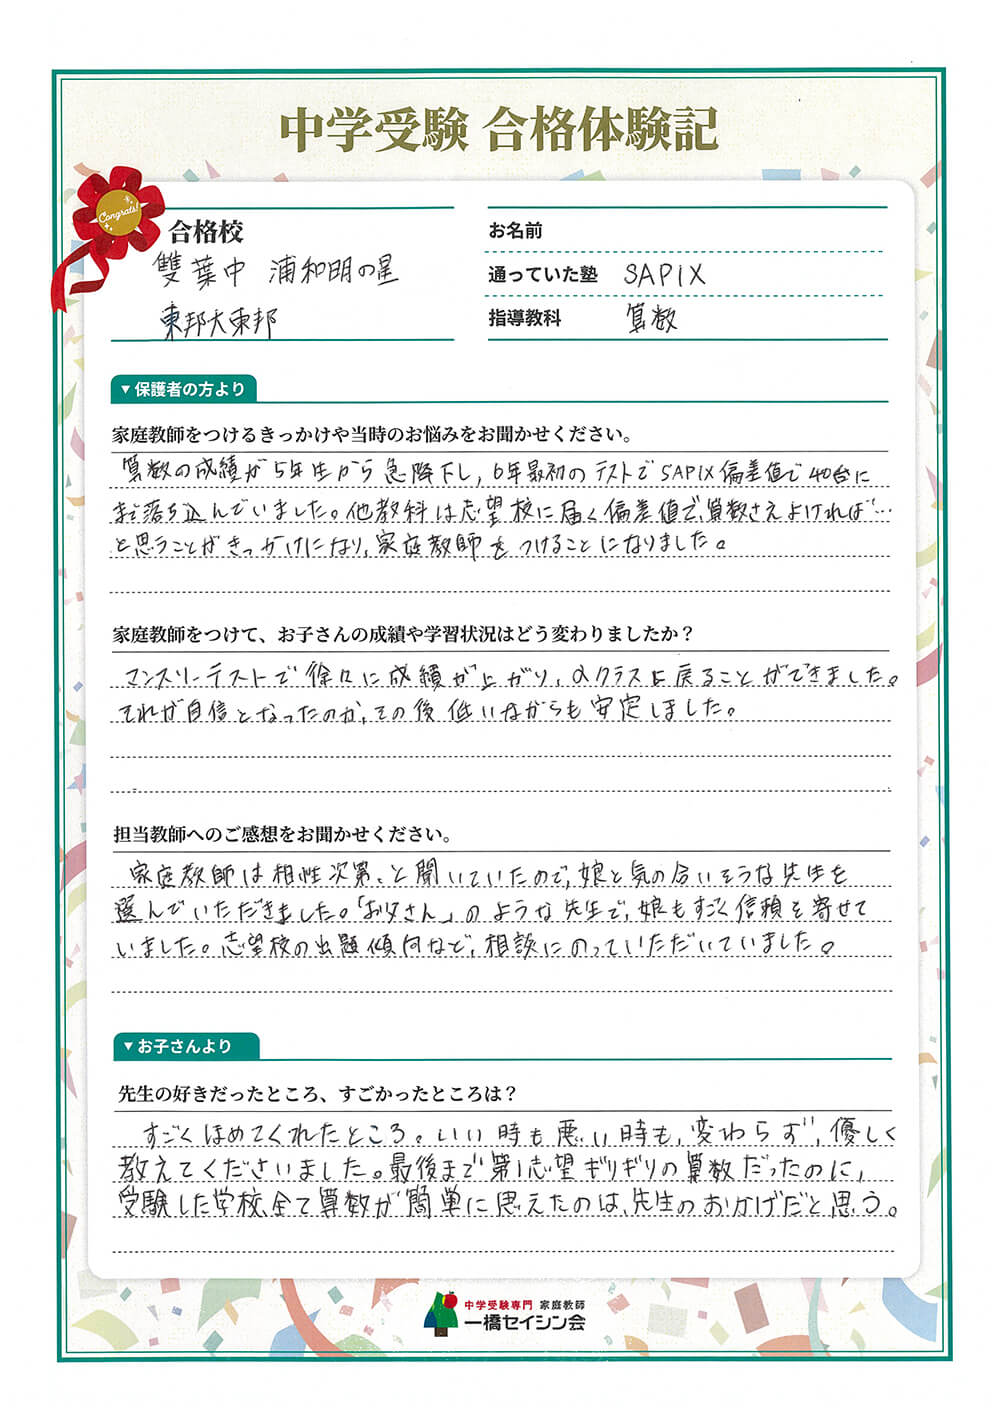 中学受験 合格体験記
Congrats!
合格校
雙葉中 浦和明の星
東邦大東邦
お名前
通っていた塾 SAPIX
指導教科 算数
▼保護者の方より
家庭教師をつけるきっかけや当時のお悩みをお聞かせください。
算数の成績が5年生から急降下し、6年最初のテストでSAPIX偏差値で40台に
まで落ち込んでいました。他教科は志望校に届く偏差値で、算数さえよければ…
と思うことがきっかけになり、家庭教師をつけることになりました。
家庭教師をつけて、お子さんの成績や学習状況はどう変わりましたか？
マンスリーテストで徐々に成績が上がり、αクラスに戻ることができました。
それが自信となったのか、その後低いながらも安定しました。
担当教師へのご感想をお聞かせください。
家庭教師は相性次第、と聞いていたので、娘と気の合いそうな先生を
選んでいただきました。「お父さん」のような先生で、娘もすごく信頼を寄せて
いました。志望校の出題傾向など、相談にのっていただいていました。
▼お子さんより
先生の好きだったところ、すごかったところは？
すごくほめてくれたところ。いい時も悪い時も、変わらず、優しく
教えてくださいました。最後まで第1志望ギリギリの算数だったのに、
受験した学校全て算数が簡単に思えたのは、先生のおかげだと思う。
中学受験専門 家庭教師
一橋セイシン会